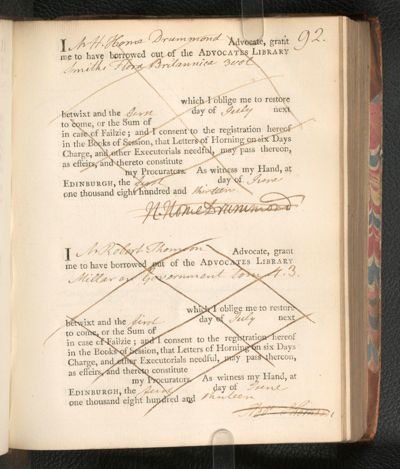 92.
I Mr H. Home Drummond Advocate, grant
me to have borrowed out of the ADVOCATES LIBRARY
Smith's Flora Britannica 3 vol
which I oblige me to restore
betwixt and the first day of July next
to come, or the Sum of
in case of Failzie; and I consent to the registration hereof
in the Books of Session, that Letters of Horning on six Days
Charge, and other Executorials needful, may pass thereon,
as effeirs, and thereto constitute
my Procurators. As witness my Hand, at
EDINBURGH, the first day of June
one thousand eight hundred and thirteen
H. Home Drummond
I Mr Robert Thomson Advocate, grant
me to have borrowed out of the ADVOCATES LIBRARY
Millar on Government tom 4. 3.
which I oblige me to restore
betwixt and the first day of July next
to come, or the Sum of
in case of Failzie; and I consent to the registration hereof
in the Books of Session, that Letters of Horning on six Days
Charge, and other Executorials needful, may pass thereon,
as effeirs, and thereto constitute
my Procurators. As witness my Hand, at
EDINBURGH, the first day of June
one thousand eight hundred and thirteen
Thomson